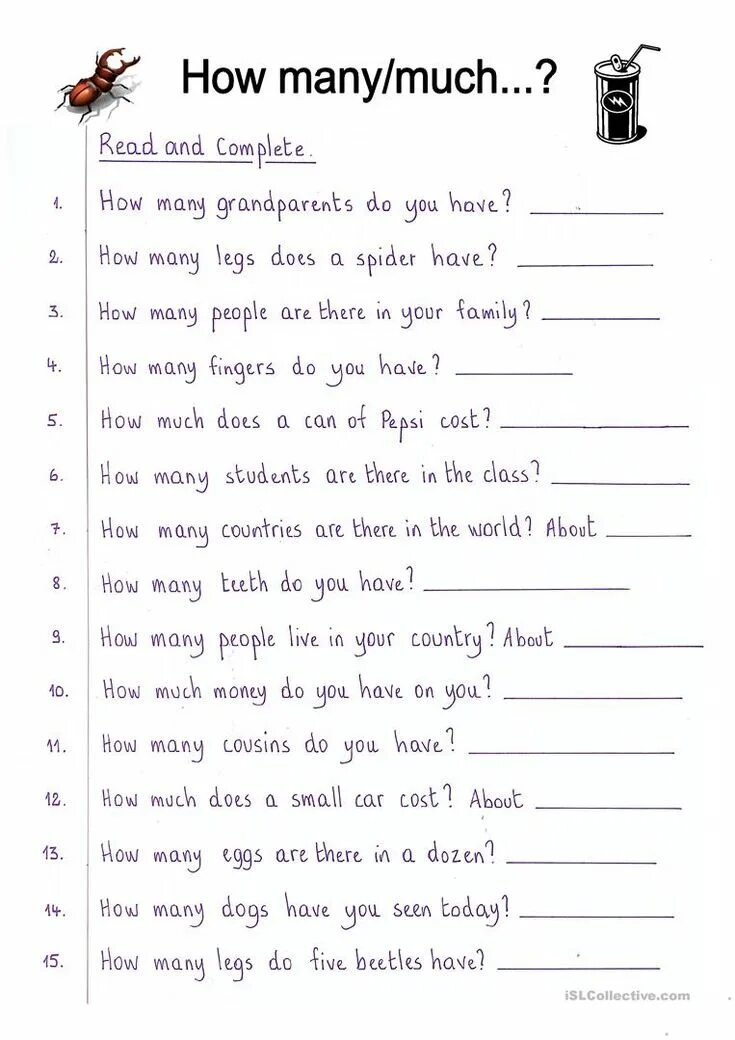 How many/much...?
Read and Complete.
1. How many grandparents do you have?
2. How many legs does a spider have?
3. How many people are there in your family?
4. How many fingers do you have?
5. How much does a can of Pepsi cost?
6. How many students are there in the class?
7. How many countries are there in the world? About
8. How many teeth do you have?
9. How many people live in your country? About
10. How much money do you have on you?
11. How many cousins do you have?
12. How much does a small car cost? About
13. How many eggs are there in a dozen?
14. How many dogs have you seen today?
15. How many legs do five beetles have?
iSLCollective.com